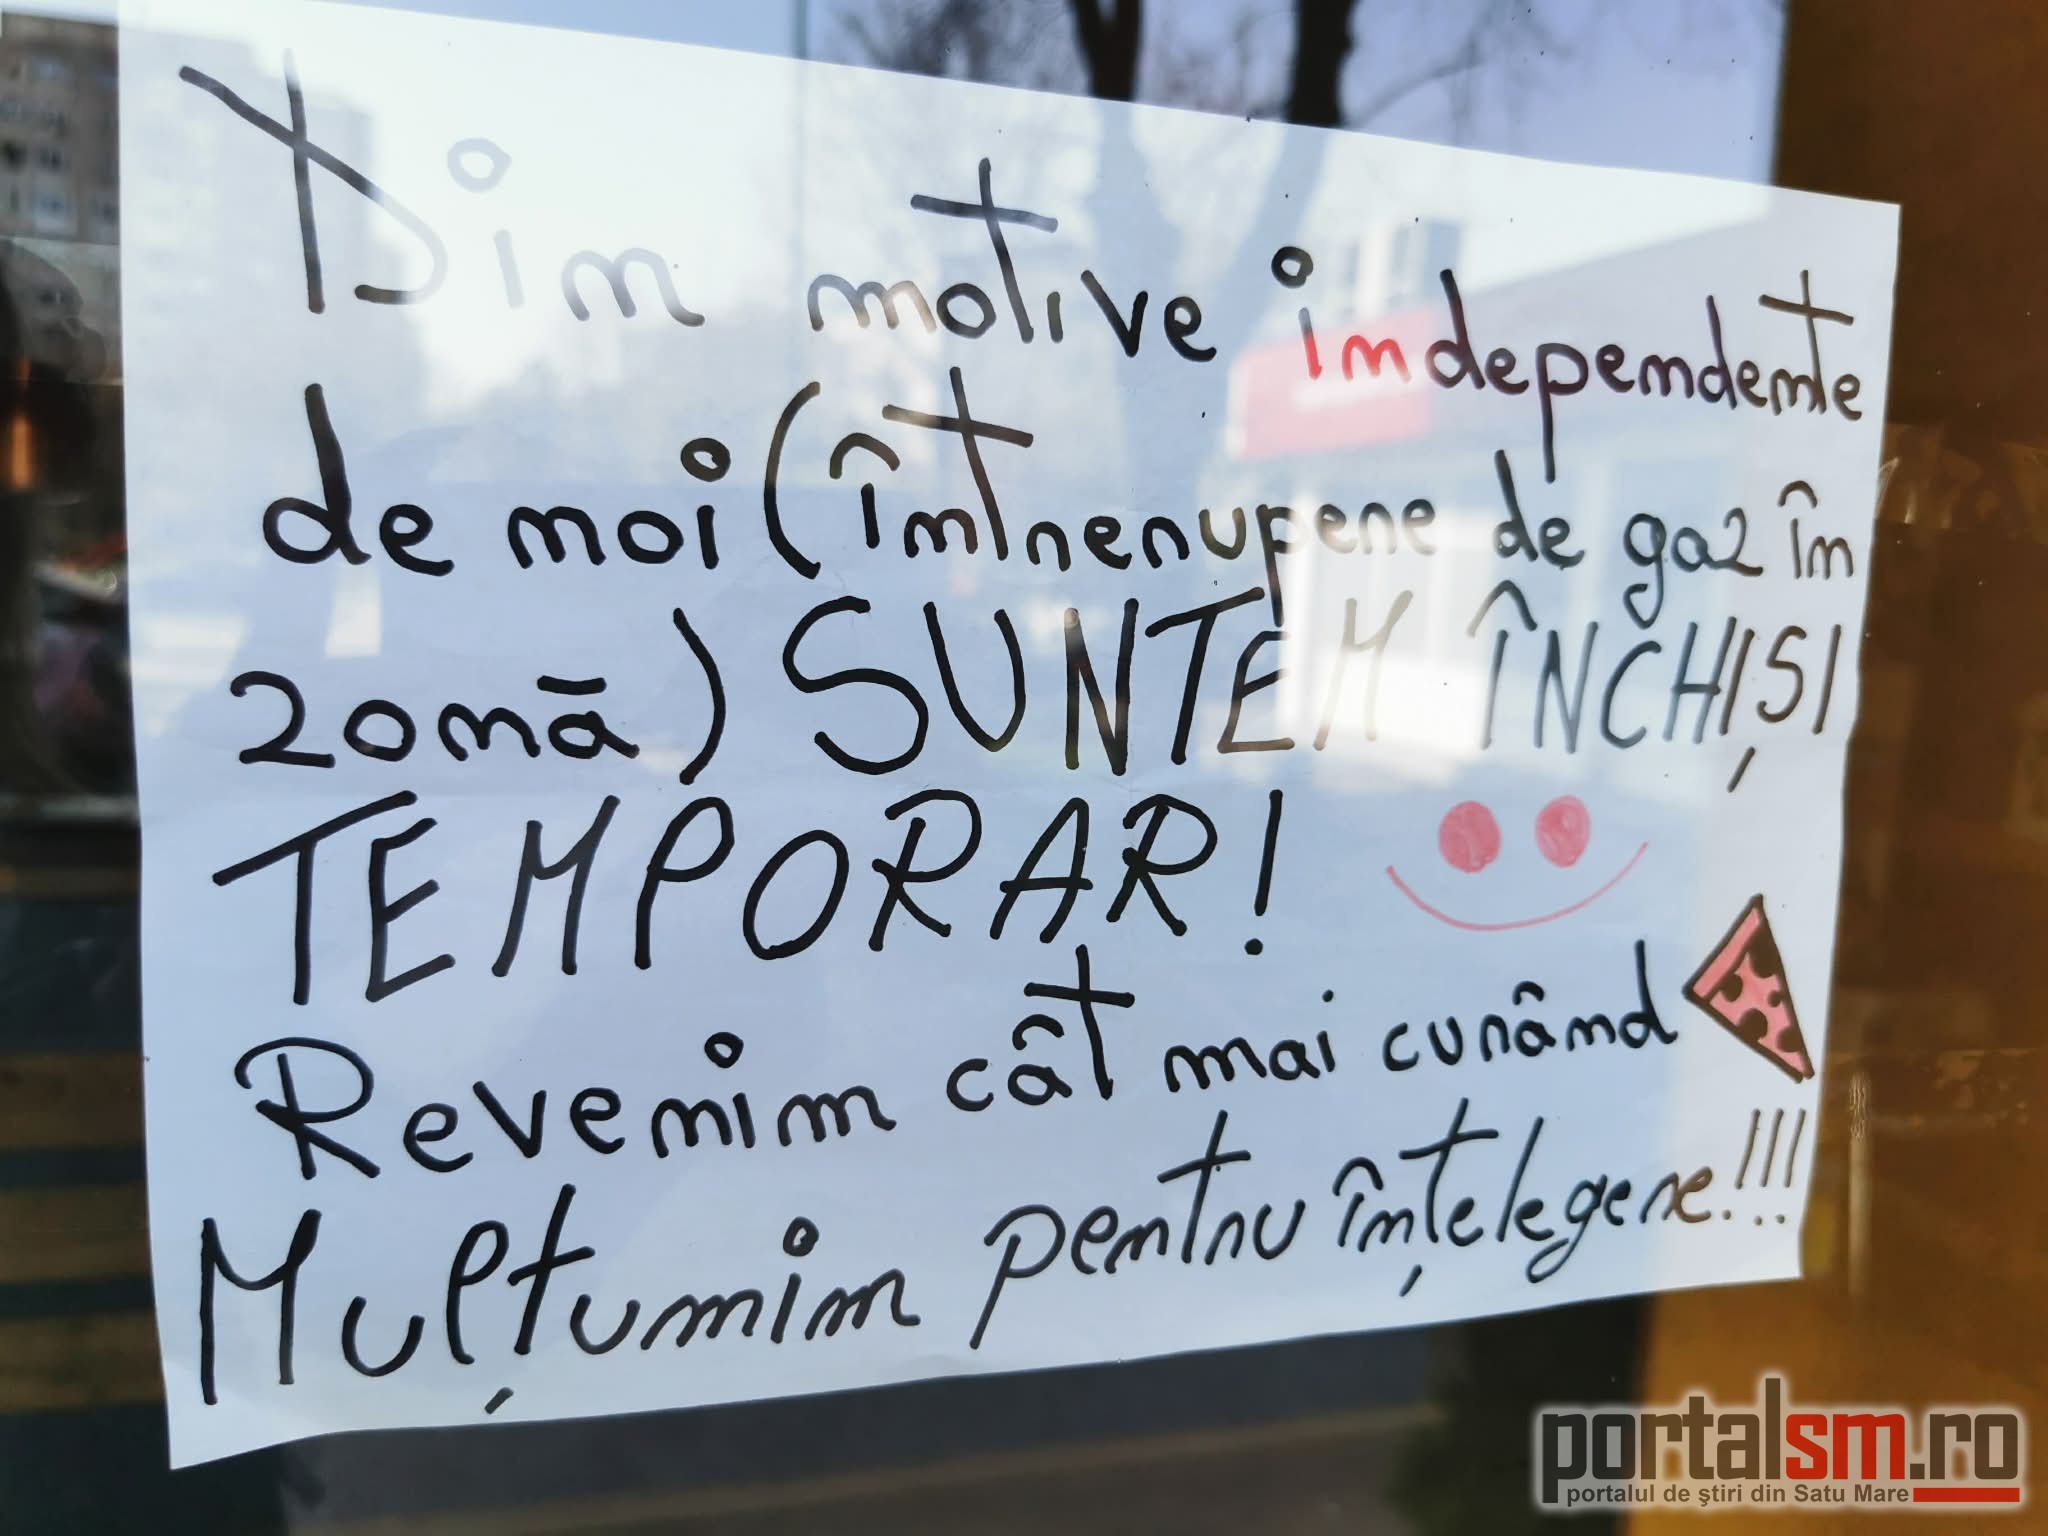 Din motive independente
de noi (întrerupere de gaz în
zonă) SUNTEM ÎNCHIȘI
TEMPORAR!
Revenim cât mai curând
Mulțumim pentru înțelegere!!!
portalsm.ro
portalul de ştiri din Satu Mare